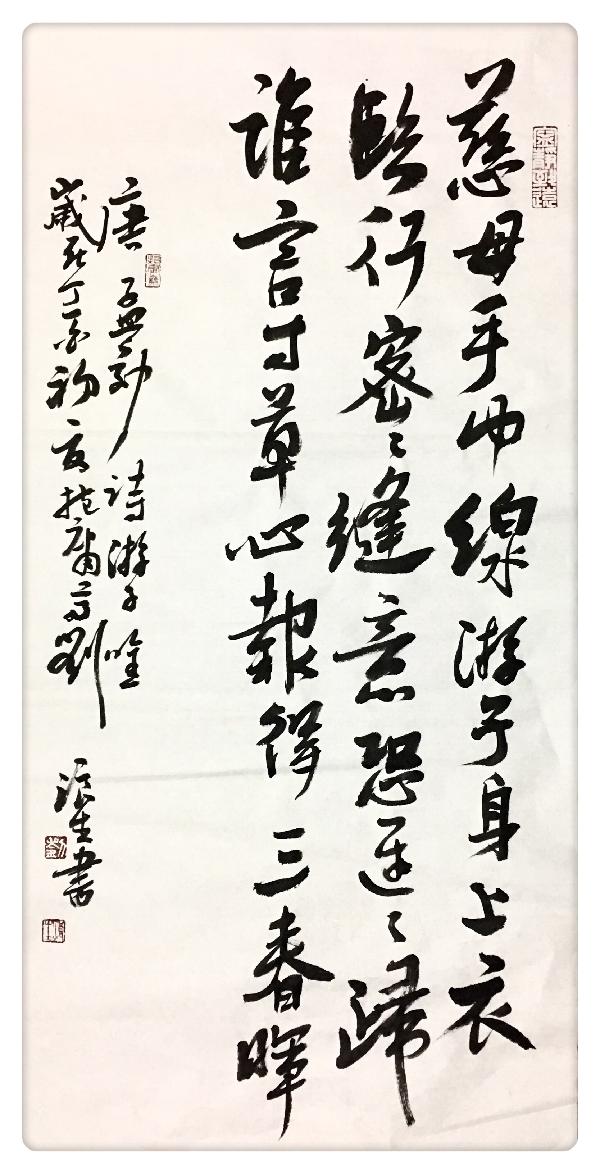 慈母手中線游子身上衣
臨行密〻縫意恐遲〻歸
誰言寸草心報得三春暉
唐孟郊詩游子吟
歲在丁酉初夏 劉
生書